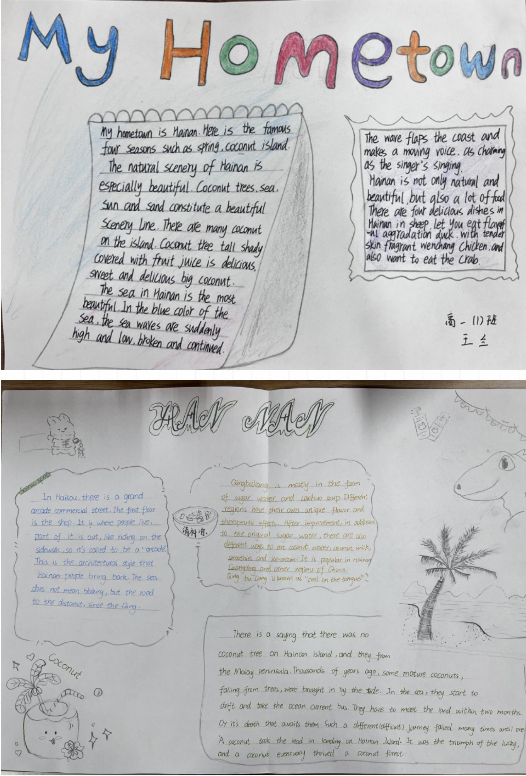 My Hometown
My hometown is Hainan. Here is the famous
four seasons such as spring, coconut island.
The natural scenery of Hainan is
especially beautiful. Coconut trees, sea.
Sun and sand constitute a beautiful
scenery line. There are many coconut
on the island. Coconut tree tall shady
covered with fruit juice is delicious,
sweet and delicious big coconut.
The sea in Hainan is the most
beautiful. In the blue color of the
sea, the sea waves are suddenly
high and low, broken and continued.
The wave flaps the coast and
makes a moving voice. as charming
as the singer's singing.
Hainan is not only natural and
beautiful, but also a lot of food
There are four delicious dishes in
Hainan in sheep let you eat
aggradation duck. with tender
skin fragrant wenchang chicken. and
also want to eat the crab.
高一(1)班
王兰
HAN NAN
In Haikou, there is a grand
arcade commercial street. The first floor
is the shop. It is where people live,
part of it is out, like riding on the
sidewalk, so it's called to be a arcade.
This is the architectural style that
people bring back. The sea
does not mean blowing, but the road
to the distance, and the
is mostly in the form
of sugar water, and coconut soup. Different
regions have their own unique flavor and
therapeutic effects. After improvements, in addition
to the original sugar water, there are also
different ways to eat
It is popular in Hainan,
Guangdong and other regions of China.
清补凉
Coconut
There is a saying that there was no
coconut tree on Hainan Island, and they from
the Malay peninsula. Thousands of years ago, some mature coconuts,
falling from trees, were brought in by the tide. In the sea, they start to
drift and take the ocean current two. They have to meet the land within two months
Or it's death that awaits them. Such a different(difficult) journey failed many times until one
A coconut took the lead in landing on Hainan Island. It was the triumph of the lucky,
and a coconut eventually thrived a coconut forest.